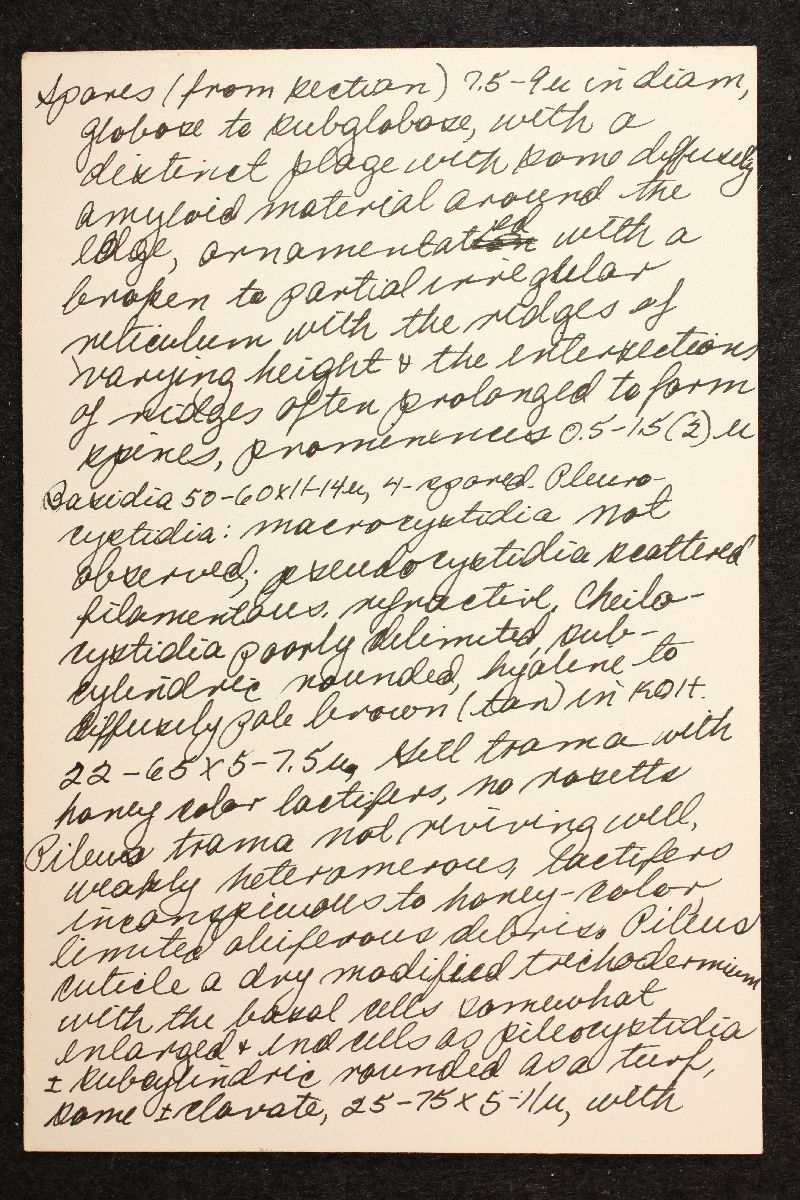 Spores (from section) 7.5-9u in diam,
globose to subglobose, with a
distinct plage with some diffusely
amyloid material around the
edge, ornamentated with a
broken to partial irregular
reticulum with the ridges of
varying height & the intersections
of ridges often prolonged to form
spines, prominences 0.5-1.5(2) u
Basidia 50-60x11-14u, 4-spored. Pleuro-
cystidia: macrocystidia not
observed; pseudocystidia scattered
filamentous, refractive. Cheilo-
cystidia poorly delimited, sub-
cylindric rounded, hyaline to
diffusely pale brown (tan) in KOH.
22-65 x 5-7.5u, Gill trama with
honey color lactifers, no rosetts
Pileus trama not reviving well,
weakly heteromerous, lactifers
inconspicuous to honey-color,
limited oliferous debris. Pileus
cuticle a dry modified trichodermium
with the basal cells somewhat
enlarged & end cells as pileocystidia
± subcylindric rounded as a turf,
some ± clavate, 25-75 x 5-11u, with